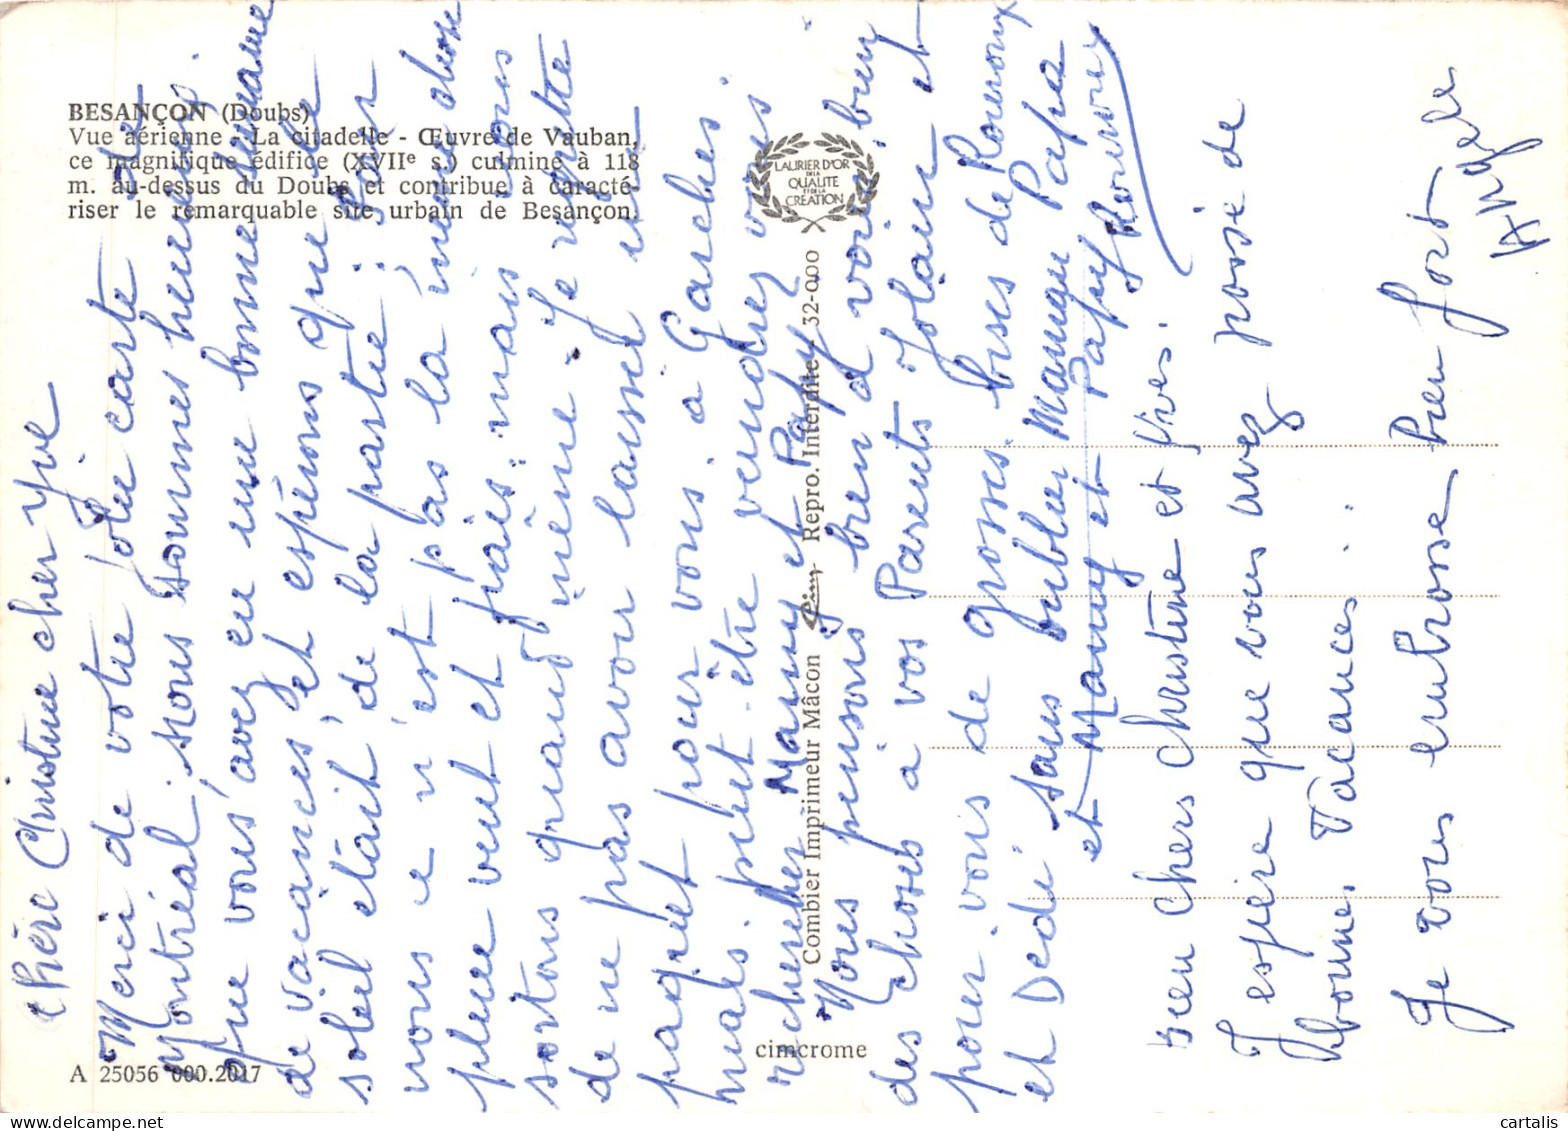 BESANÇON (Doubs)
Vue aérienne - La citadelle - Œuvre de Vauban,
ce magnifique édifice (XVIIe s.) culmine à 118
m. au-dessus du Doubs et contribue à caracté-
riser le remarquable site urbain de Besançon.
LAURIER D'OR
DE LA
QUALITE
ET DE LA
CREATION
A 25056 000.2017
cimcrome
Combier Imprimeur Mâcon Cim Repro. Interdite - 32-000
Chère Christine cher Yve
Merci de votre jolie carte de
Montréal. nous sommes heureux.
que vous avez eu une bonne semaine
de vacances et espérons que le
soleil était de la partie; pour
nous ce n'est pas la même chose
pluie vent et frais. mais nous
sortons quand même. Je regrette
de ne pas avoir laissé un
paquet pour vous. à Garches.
mais peut-être viendrez vous
rechercher Mamy et Papy
Nous pensons bien d voir bien
des choses à vos Parents Yolaine et
pour vous de grosses bises de
et Dédé. sans oublier Maman Papa
et Mamy et Papy
Bien chers Christine et Yves.
J espère que vous avez passé de
bonnes Vacances.
Je vous embrasse bien fort
Angèle
cartalis